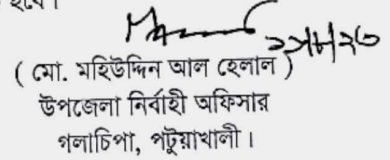 হবে।
( মো. মহিউদ্দিন আল হেলাল )
উপজেলা নির্বাহী অফিসার
গলাচিপা, পটুয়াখালী।